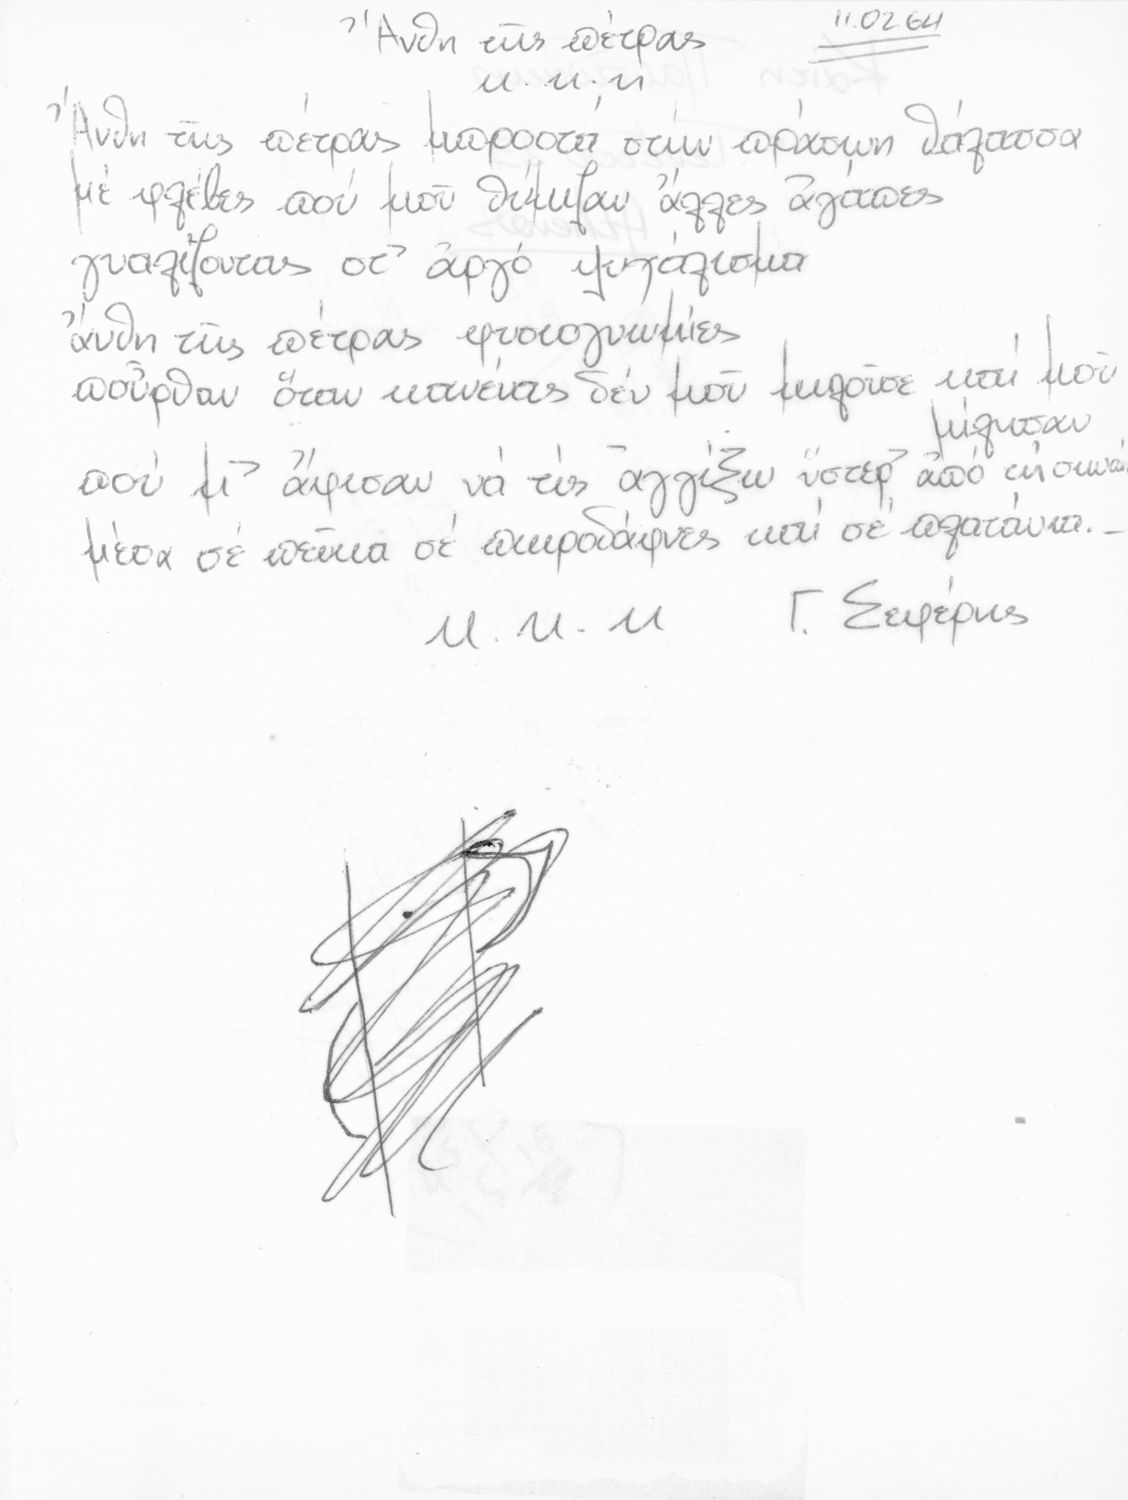 Ἄνθη τῆς πέτρας
11.02.64
κ.κ.κ
Ἄνθη τῆς πέτρας μπροστά στήν πράσινη θάλασσα
μέ φλέβες πού μοῦ θύμιζαν ἄλλες ἀγάπες
γυαλίζοντας στ' ἀργό ψιχάλισμα
ἄνθη τῆς πέτρας φυσιογνωμίες
ποὖρθαν ὅταν κανένας δέν μοῦ μιλοῦσε καί μοῦ
μίλησαν
πού μ' ἄφισαν νά τίς ἀγγίξω ὕστερ' ἀπό τή σιωπή
μέσα σέ πεῦκα σέ πικροδάφνες καί σέ πλατάνια. _
κ. κ. κ
Γ. Σεφέρης